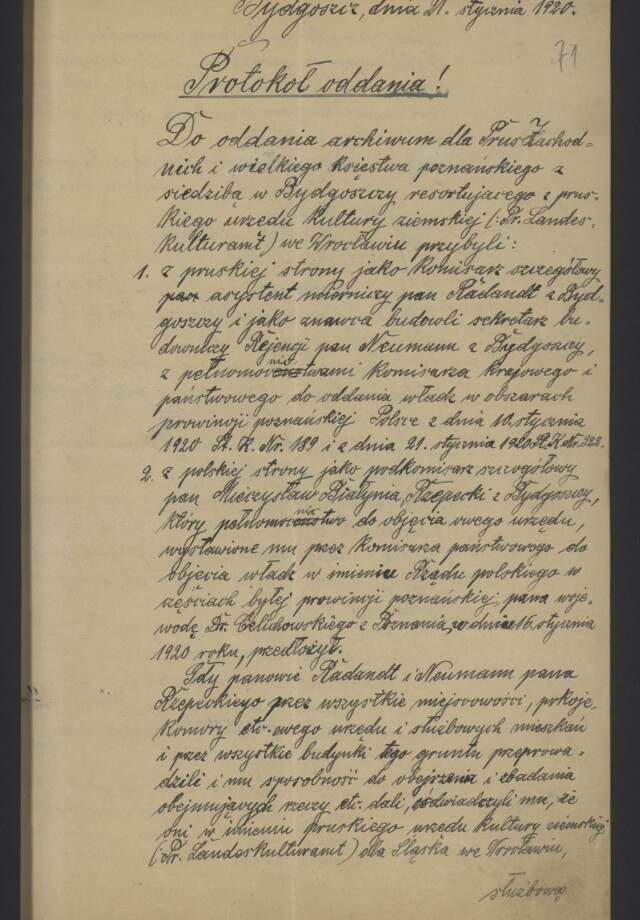 Bydgoszcz, dnia 21. stycznia 1920.
71
Protokoł oddania!
Do oddania archiwum dla Prus Zachod=
nich i wielkiego księstwa poznańskiego z
siedzibą w Bydgoszczy resortującego z prus-
kiego urzędu kultury ziemskiej (: Pr. Landes-
kulturamt) we Wrocławiu przybyli:
1. z pruskiej strony jako komisarz szczegółowy
pan asystent mierniczy pan Radandt z Byd-
goszczy i jako znawca budowli sekretarz bu-
downiczy Rejencji pan Neumann z Bydgoszczy,
z pełnomocnictwami komisarza krajowego i
państwowego do oddania władz w obszarach
prowincji poznańskiej Polsce z dnia 10. stycznia
1920 St. K. Nr. 189 i z dnia 21. stycznia 1920 R. K. Nr. 222.
2. z polskiej strony jako podkomisarz szczegółowy
pan Mieczysław Białynia Rzepecki z Bydgoszczy,
który pełnomocnictwo do objęcia owego urzędu,
wystawione mu przez komisarza państwowego do
objęcia władz w imieniu Rządu polskiego w
częściach byłej prowincji poznańskiej, pana woje-
wodę Dr. Celichowskiego z Poznania, w dniu 16. stycznia
1920 roku, przedłożył.
Gdy panowie Radandt i Neumann pana
Rzepeckiego przez wszystkie miejscowości, pokoje,
komory etc. owego urzędu i służbowych mieszkań
i przez wszystkie budynki tego gruntu przeprowa-
dzili i mu sposobność do obejrzenia i zbadania
obejmujących rzeczy etc. dali, oświadczyli mu, że
oni w imieniu pruskiego urzędu kultury ziemskiej
(: Pr. Landeskulturamt) dla Śląska we Wrocławiu,
służbową